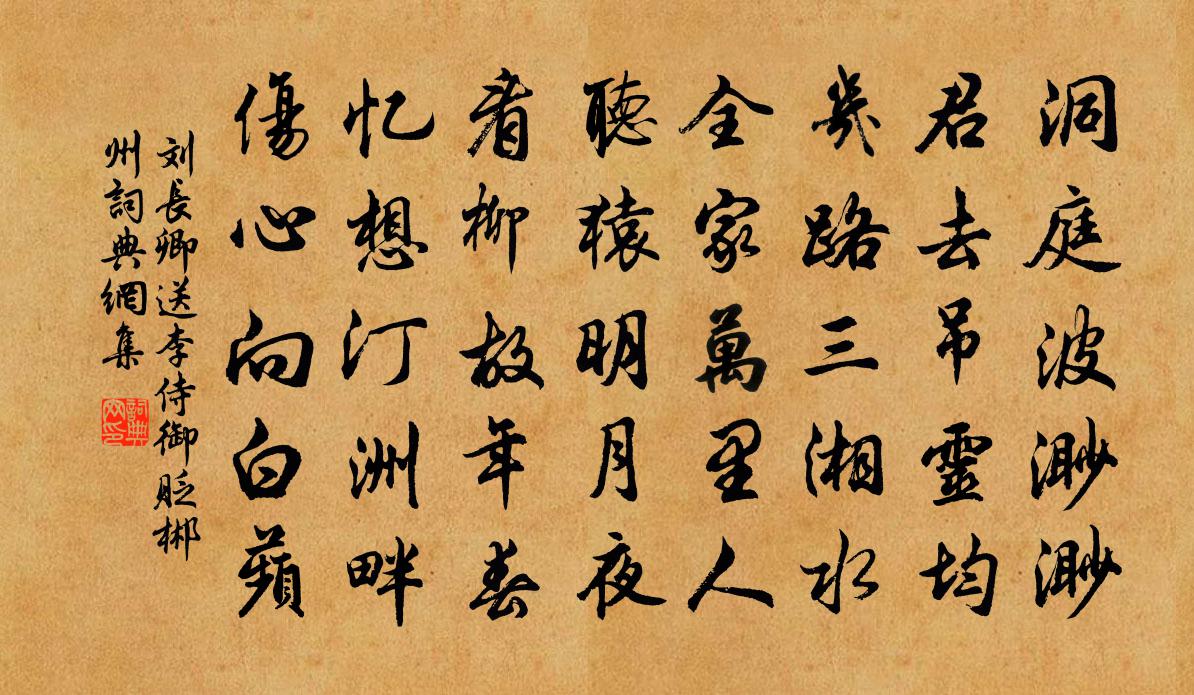 洞庭波渺渺
君去吊靈均
幾路三湘水
全家萬里人
聽猿明月夜
看柳故年春
忆想汀洲畔
傷心向白蘋
刘長卿送李侍御貶郴
州詞典網集
詞典
网印